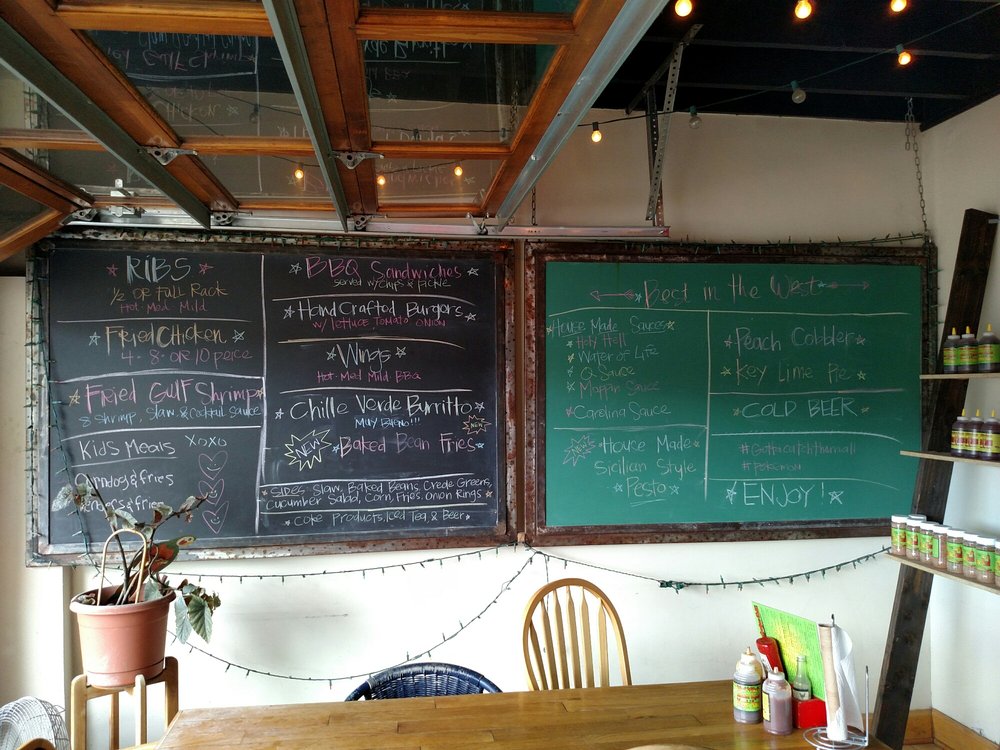 RIBS
1/2 OR Full Rack
Hot Med Mild
Fried Chicken
4 · 8 · OR 10 peice
Fried Gulf Shrimp
8 Shrimp, Slaw, & Cocktail Sauce
Kids Meals XOXO
Corndog & fries
& fries
BBQ Sandwiches
Served w/ chips & Pickle
Hand Crafted Burgers
w/ lettuce Tomato Onion
Wings
Hot Med Mild BBQ
Chille Verde Burritto
Muy Bueno!!!
NEW
NEW
Baked Bean Fries
Sides Slaw, Baked Beans, Creole Greens,
Cucumber Salad, Corn, Fries, Onion Rings
Coke Products, Iced Tea & Beer
Best in the West
House Made Sauces
Holy Hell
Water of Life
Q Sauce
Moppin Sauce
Carolina Sauce
NEW
House Made
Sicilian Style
Pesto
Peach Cobbler
Key Lime Pie
COLD BEER
#Gottacatchthemall
#Pokemon
ENJOY!